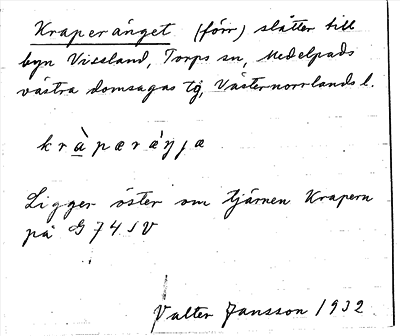 Kraperänget (förr) slåtter till
byn Vissland, Torps sn, Medelpads
västra domsagas tg, Västernorrlands l.
kràpæræ̀ŋja
Ligger öster om tjärnen Krapern
på G 74 SV
Valter Jansson 1932